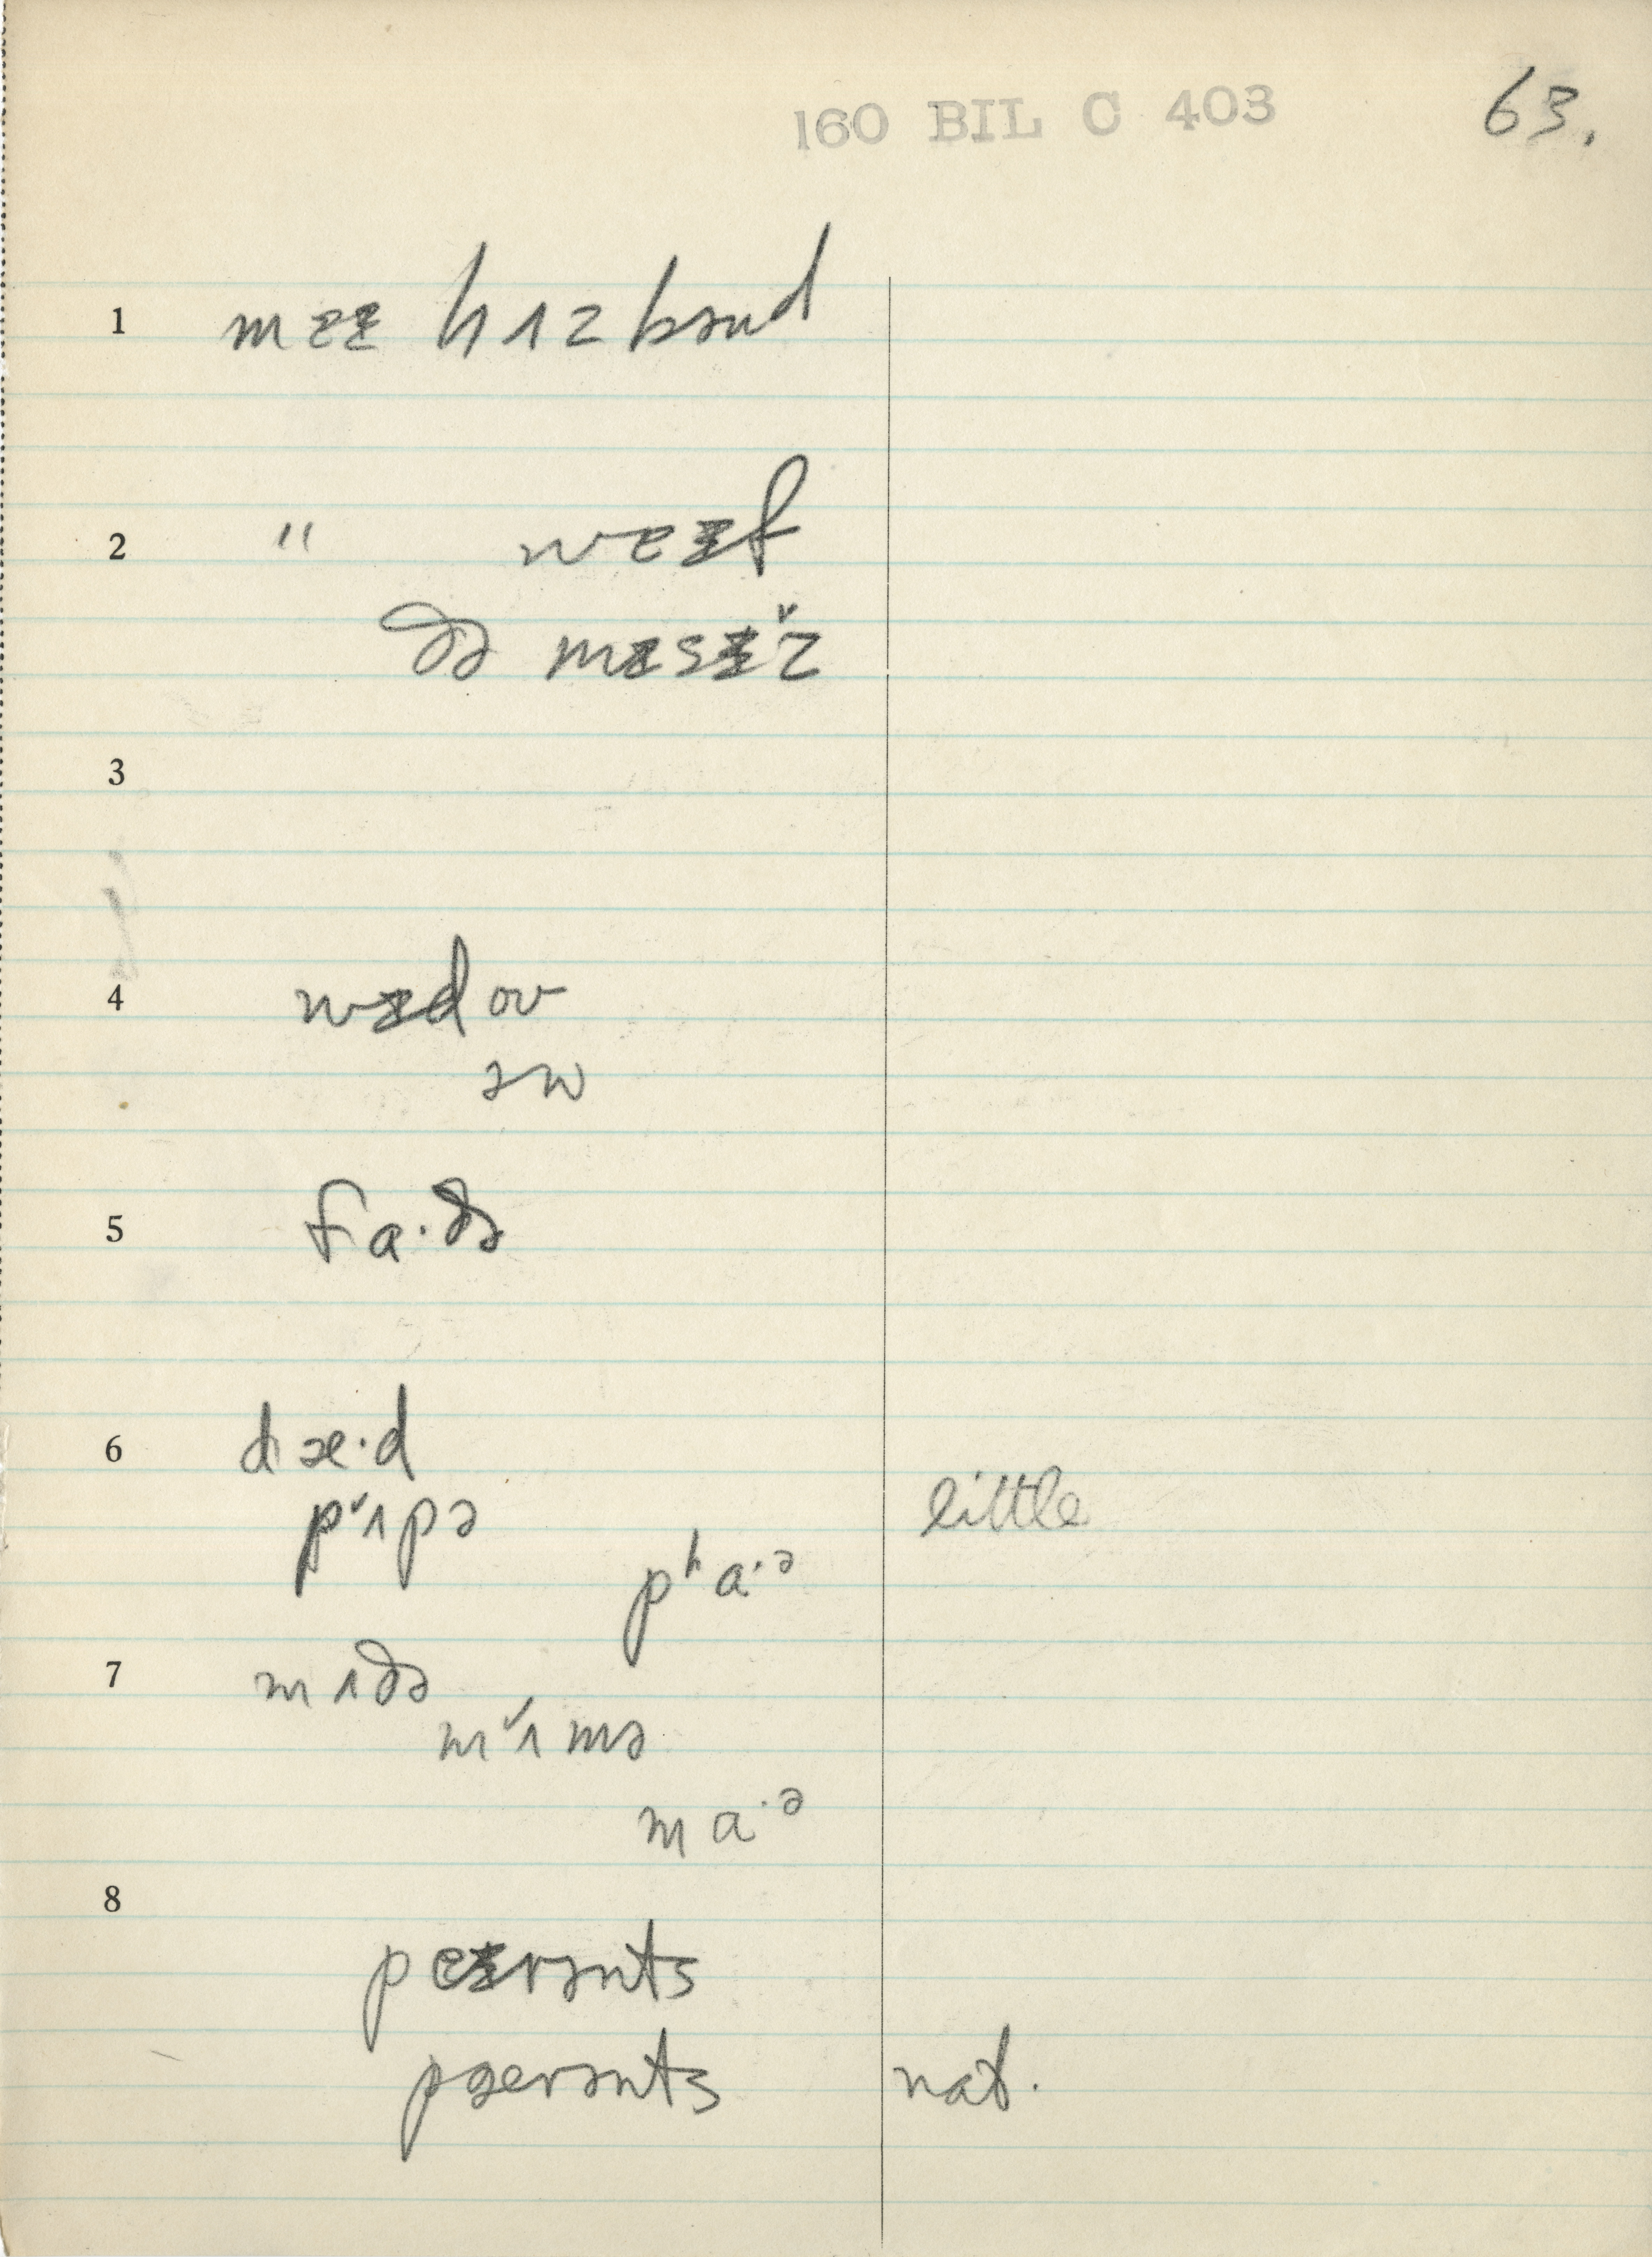 160 BIL C 403 63.
1 mɐɪ hʌzbənd
2 " wɐɪf
ðə mɪsɪˇz
3
4 wɪdoʊ
əw
5 fa·ðə
6 dæ·d
pˇʌpə little
pʰa·ᵊ
7 mʌðə
mˇʌmə
ma·ᵊ
8
peɪrənts
pærənts nat.